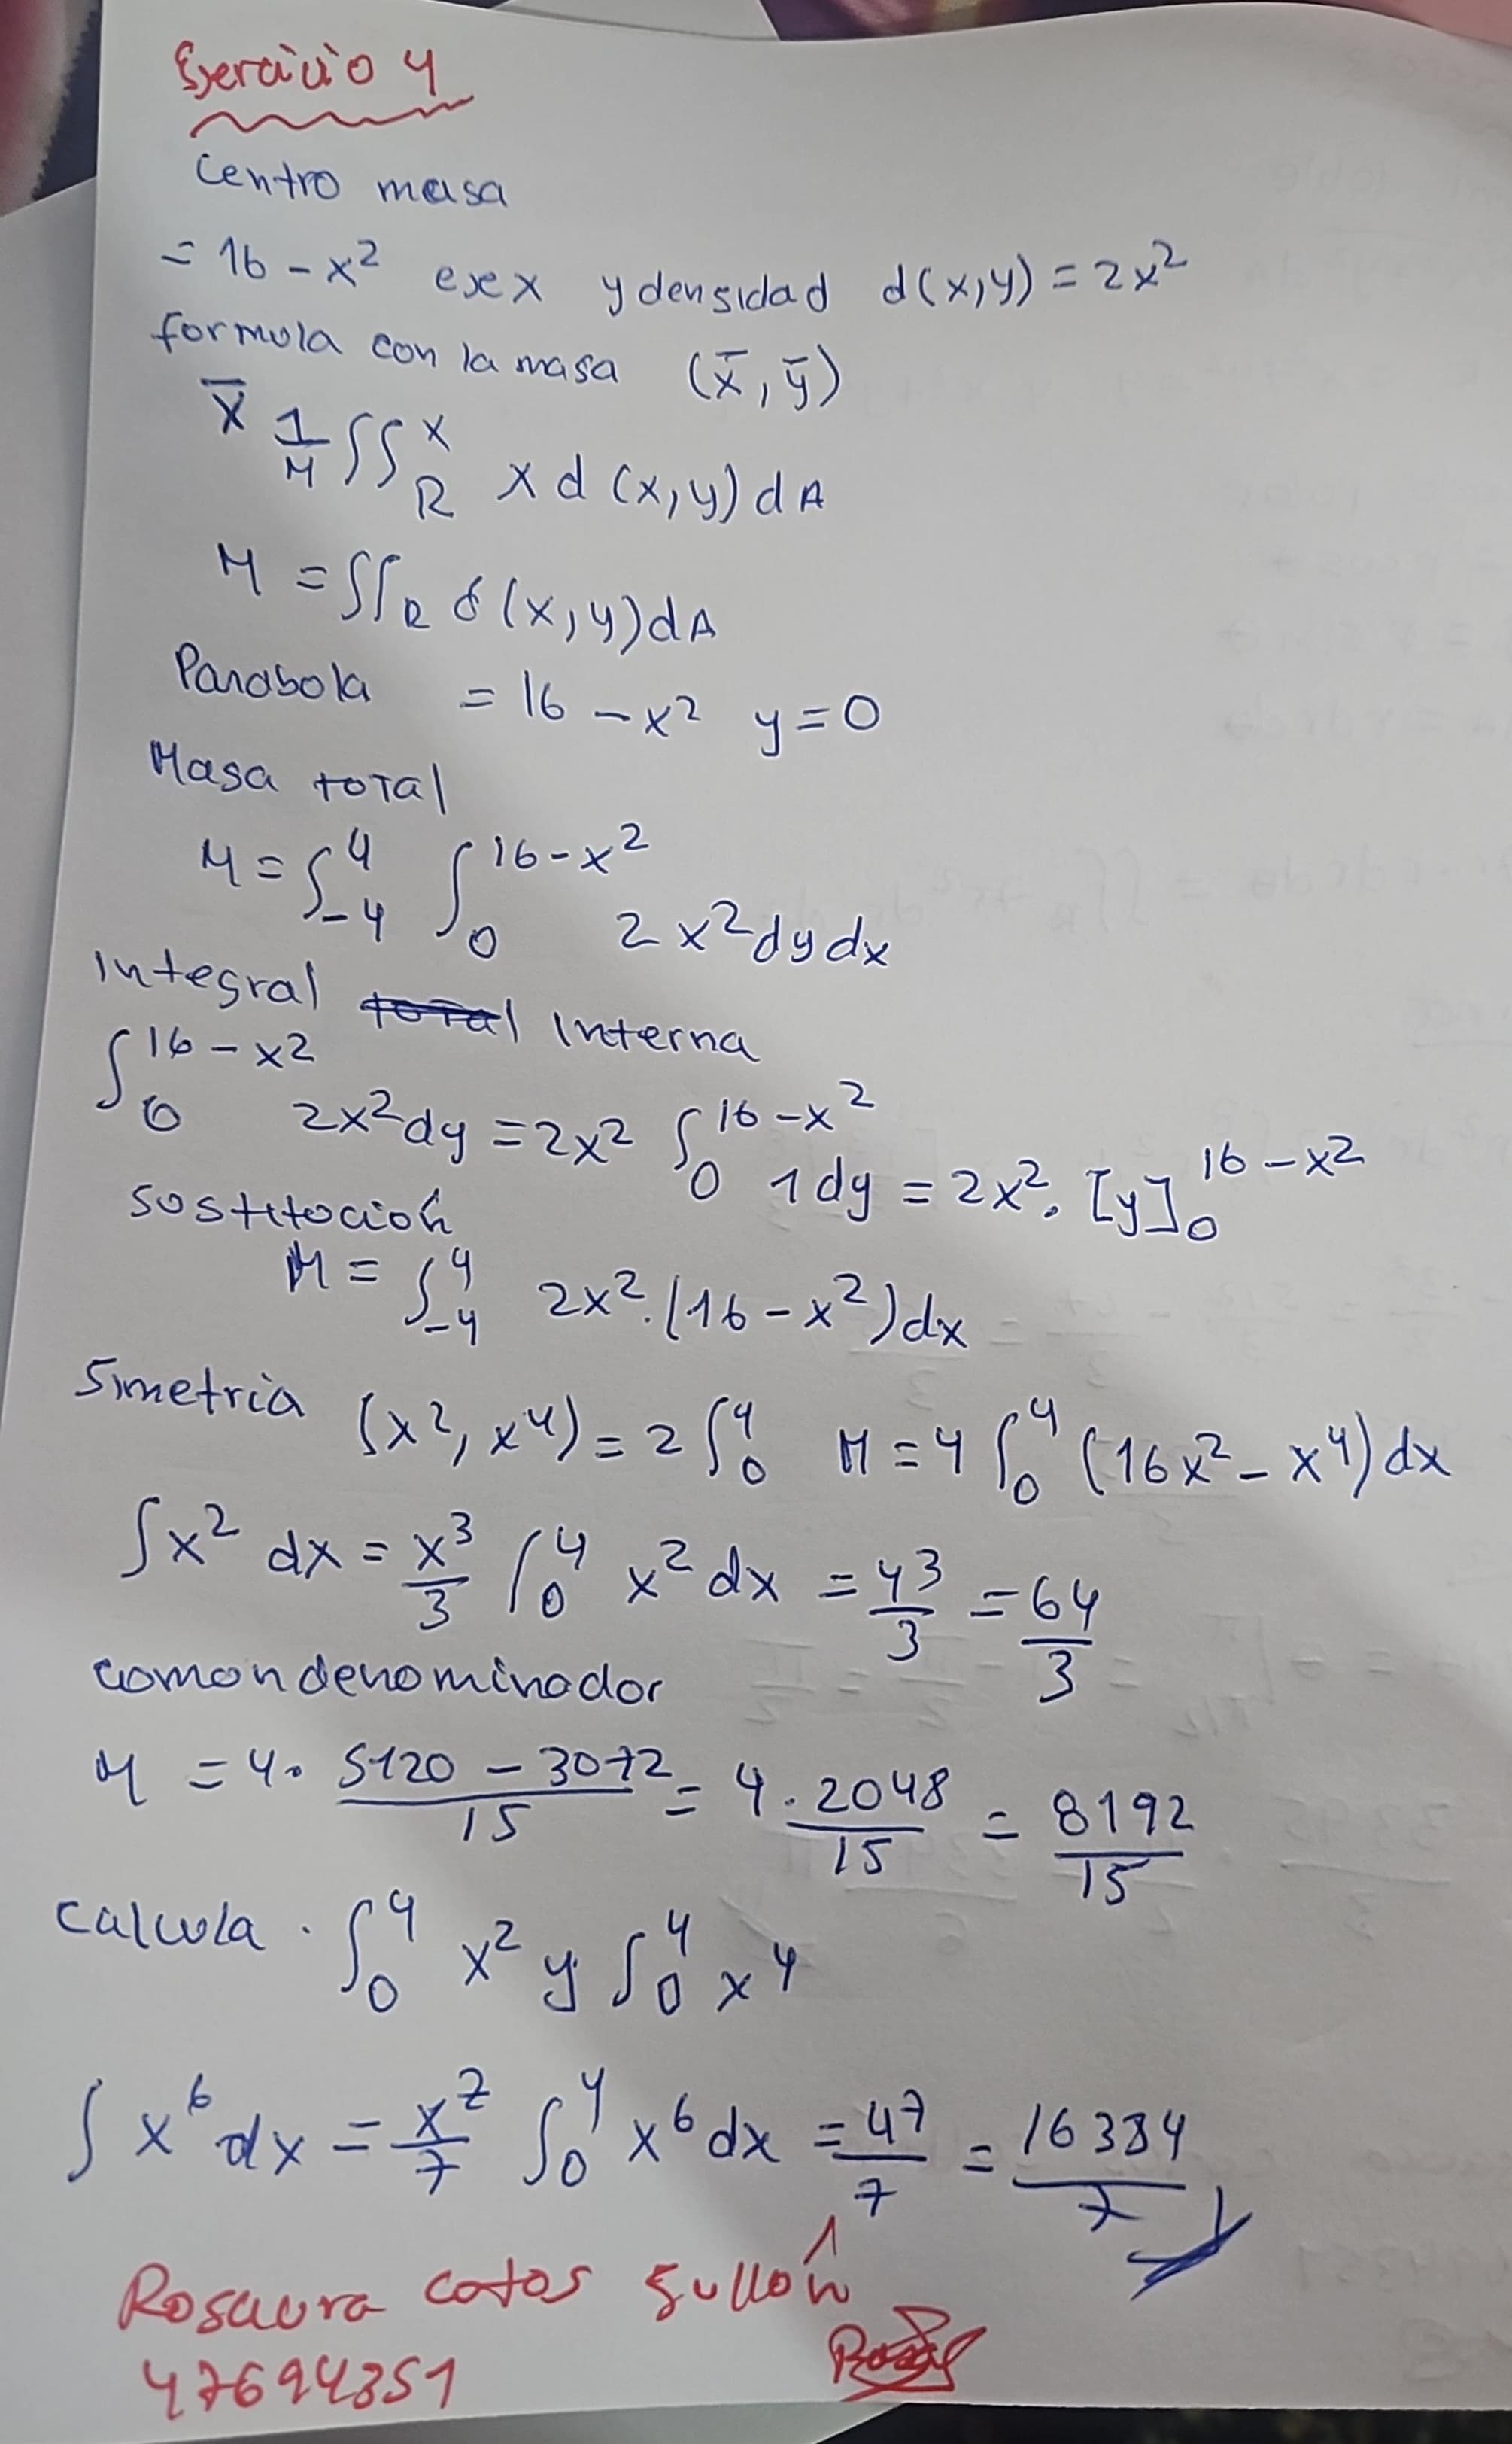 Ejercicio 4
Centro masa
= 16 - x² eje x y densidad d(x,y) = 2x²
formula con la masa (x̄, ȳ)
x̄ 1/M ∫∫_R^x x d(x,y) dA
M = ∫∫_R δ(x,y) dA
Parabola = 16 - x² y = 0
Masa total
M = ∫_-4^4 ∫_0^16-x² 2x² dy dx
Integral total Interna
∫_0^16-x² 2x² dy = 2x² ∫_0^16-x² 1 dy = 2x². [y]_0^16-x²
Sostitocion
M = ∫_-4^4 2x².(16 - x²) dx
Simetria (x², x⁴) = 2 ∫_0^4 M = 4 ∫_0^4 (16x² - x⁴) dx
∫x² dx = x³/3 ∫_0^4 x² dx = 4³/3 = 64/3
comon denominador
M = 4. 5120 - 3072/15 = 4. 2048/15 = 8192/15
Calcula. ∫_0^4 x² y ∫_0^4 x⁴
∫x⁶ dx = x⁷/7 ∫_0^4 x⁶ dx = 4⁷/7 = 16384/7
Rosaura
47694351